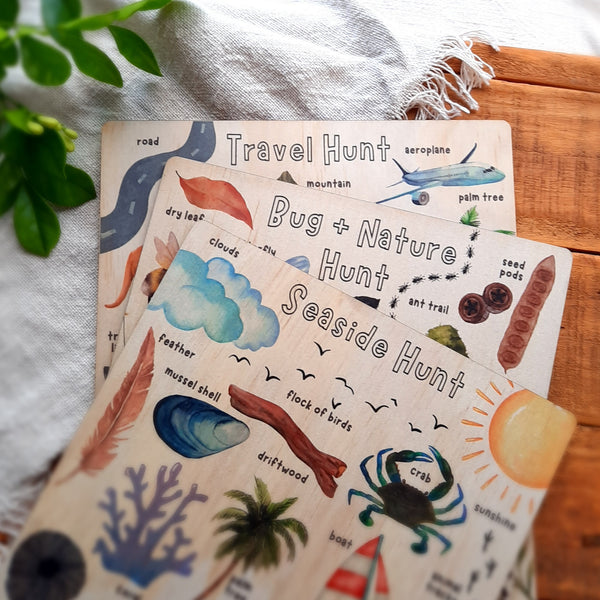 road
Travel Hunt
aeroplane
mountain
palm tree
dry leaf
Bug + Nature
Hunt
fly
seed
pods
ant trail
clouds
Seaside Hunt
feather
mussel shell
flock of birds
driftwood
crab
sunshine
boat